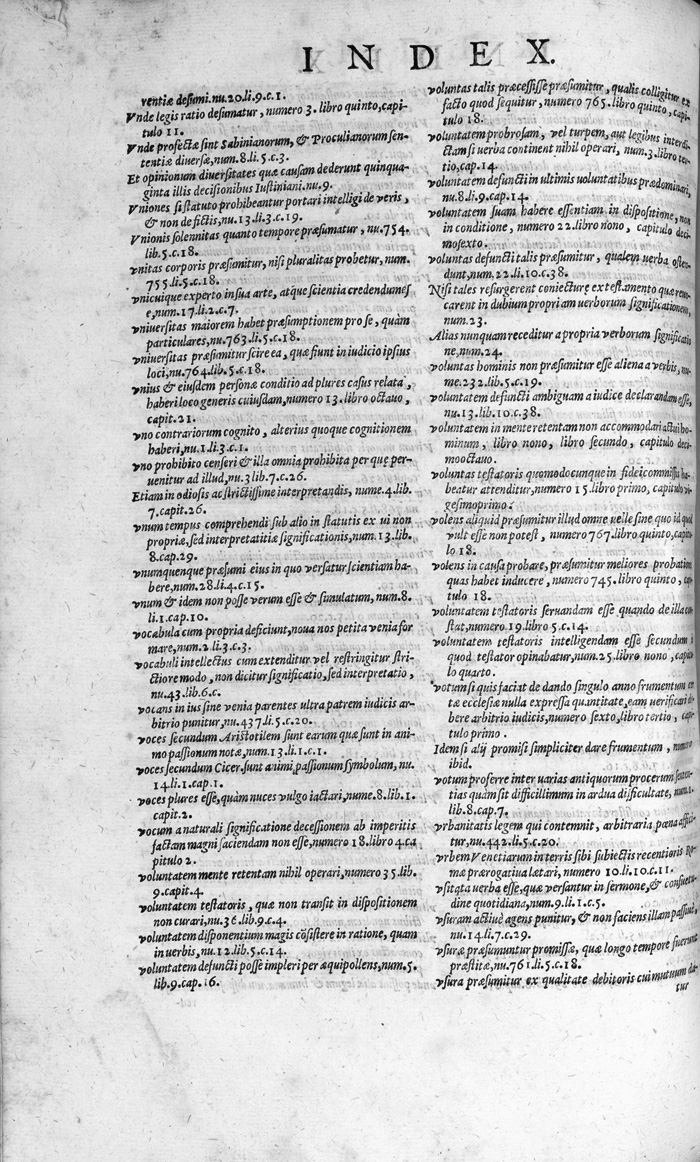 INDEX.
ventiæ desumi.nu.20.li.9.c.1.
Vnde legis ratio desumatur, numero 3. libro quinto, capi-
tulo 11.
Vnde profectæ sint Sabinianorum, & Proculianorum sen-
tentiæ diuersæ, num.8.li.5.c.3.
Et opinionum diuersitates quæ causam dederunt quinqua-
ginta illis decisionibus Iustiniani.nu.9.
Vniones si statuto prohibeantur portari intelligi de veris,
& non de fictis, nu.13.li.3.c.19.
Vnionis solennitas quanto tempore præsumatur, nu.754.
lib.5.c.18.
vnitas corporis præsumitur, nisi pluralitas probetur, num.
755.li.5.c.18.
vnicuique experto in sua arte, atque scientia credendumes
e, num.17.li.2.c.7.
vniuersitas maiorem habet præsumptionem pro se, quàm
particulares, nu.763.li.5.c.18.
vniuersitas præsumitur scire ea, quæ fiunt in iudicio ipsius
loci, nu.764.lib.5.c.18.
vnius & eiusdem personæ conditio ad plures casus relata,
haberi loco generis cuiusdam, numero 13. libro octauo,
capit.21.
vno contrariorum cognito, alterius quoque cognitionem
haberi, nu.1.li.3.c.1.
vno prohibito censeri & illa omnia prohibita per quę per-
uenitur ad illud, nu.3 lib.7.c.26.
Etiam in odiosis ac strictissime interpretandis, nume.4.lib.
7.capit.26.
vnum tempus comprehendi sub alio in statutis ex ui non
propriæ, sed interpretatitiæ significationis, num.13. lib.
8.cap.29.
vnumquenque præsumi eius in quo versatur scientiam ha-
bere, num.28.li.4.c.15.
vnum & idem non posse verum esse & simulatum, num.8.
li.1.cap.10.
vocabula cum propria deficiunt, noua nos petita venia for
mare, num.2 li.3.c.3.
vocabuli intellectus cum extenditur vel restringitur stri-
ctiore modo, non dicitur significatio, sed interpretatio,
nu.43.lib.6.c.
vocans in ius sine venia parentes ultra patrem iudicis ar-
bitrio punitur, nu.437.li.5.c.20.
voces secundum Aristotilem sunt earum quæ sunt in ani-
mo passionum notæ, num.13.li.1.c.1.
voces secundum Cicer. sunt animi, passionum symbolum, nu.
14.li.1.cap.1.
voces plures esse, quàm nuces vulgo iactari, nume.8.lib.1.
capit.2.
vocum a naturali significatione decessionem ab imperitis
factam magni faciendam non esse, numero 18. libro 4.ca
pitulo 2.
voluntatem mente retentam nihil operari, numero 35.lib.
9.capit.4.
voluntatem testatoris, quæ non transit in dispositionem
non curari, nu.36.lib.9.c.4.
voluntatem disponentium magis cõsistere in ratione, quam
in uerbis, nu.12.lib.5.c.14.
voluntatem defuncti posse impleri per æquipollens, num.5.
lib.9.cap.16.
voluntas talis præcessisse præsumitur, qualis colligitur ex
facto quod sequitur, numero 765. libro quinto, capi-
tulo 18.
voluntatem probrosam, vel turpem, aut legibus interdi-
ctam si uerba continent nihil operari, num.3.libro ter-
tio, cap.14.
voluntatem defuncti in ultimis uoluntatibus prædominari,
nu.8.li.9.cap.14.
voluntatem suam habere essentiam in dispositione, non
in conditione, numero 22. libro nono, capitulo deci-
mosexto.
voluntas defuncti talis præsumitur, qualem uerba osten-
dunt, num.22.li.10.c.38.
Nisi tales resurgerent coniecturę ex testamento quæ reuo
carent in dubium propriam uerborum significationem,
num.23.
Alias nunquam receditur a propria verborum significatio
ne, num.24.
voluntas hominis non præsumitur esse aliena a verbis, nu-
me.232.lib.5.c.19.
voluntatem defuncti ambiguam a iudice declarandam esse,
nu.13.lib.10.c.38.
voluntatem in mente retentam non accommodari actui ho
minum, libro nono, libro secundo, capitulo deci-
mooctauo.
voluntas testatoris quomodocunque in fideicommissis ha-
beatur attenditur, numero 15. libro primo, capitulo vi-
gesimoprimo.
volens aliquid præsumitur illud omne uelle sine quo id quod
vult esse non potest, numero 767. libro quinto, capitu-
lo 18.
volens in causa probare, præsumitur meliores probationes
quas habet inducere, numero 745. libro quinto, capi-
tulo 18.
voluntatem testatoris seruandam esse quando de illa con-
stat, numero 19. libro 5.c.14.
voluntatem testatoris intelligendam esse secundum
quod testator opinabatur, num.25. libro nono, capitu
lo quarto.
votum si quis faciat de dando singulo anno frumentum
tæ ecclesiæ nulla expressa quantitate, eam uerificari de-
bere arbitrio iudicis, numero sexto, libro tertio, capi-
tulo primo.
Idem si alij promisi simpliciter dare frumentum, numero
ibid.
votum proferre inter uarias antiquorum procerum senten-
tias quam sit difficillimum in ardua difficultate, num.1.
lib.8.cap.7.
vrbanitatis legem qui contemnit, arbitraria pœna affici-
tur, nu.442.li.5.c.20.
vrbem Venetiarum in terris sibi subiectis recentioris Ro-
mæ prærogatiua lætari, numero 10.li.10.c.11.
vsitata uerba esse, quæ versantur in sermone, & consuetu-
dine quotidiana, num.9.li.1.c.5.
vsuram actiuè agens punitur, & non faciens illam passiuè,
nu.14.li.7.c.29.
vsuræ præsumuntur promissæ, quæ longo tempore fuerunt
præstitæ, nu.761.li.5.c.18.
vsura præsumitur ex qualitate debitoris cui mutuum da-
tur